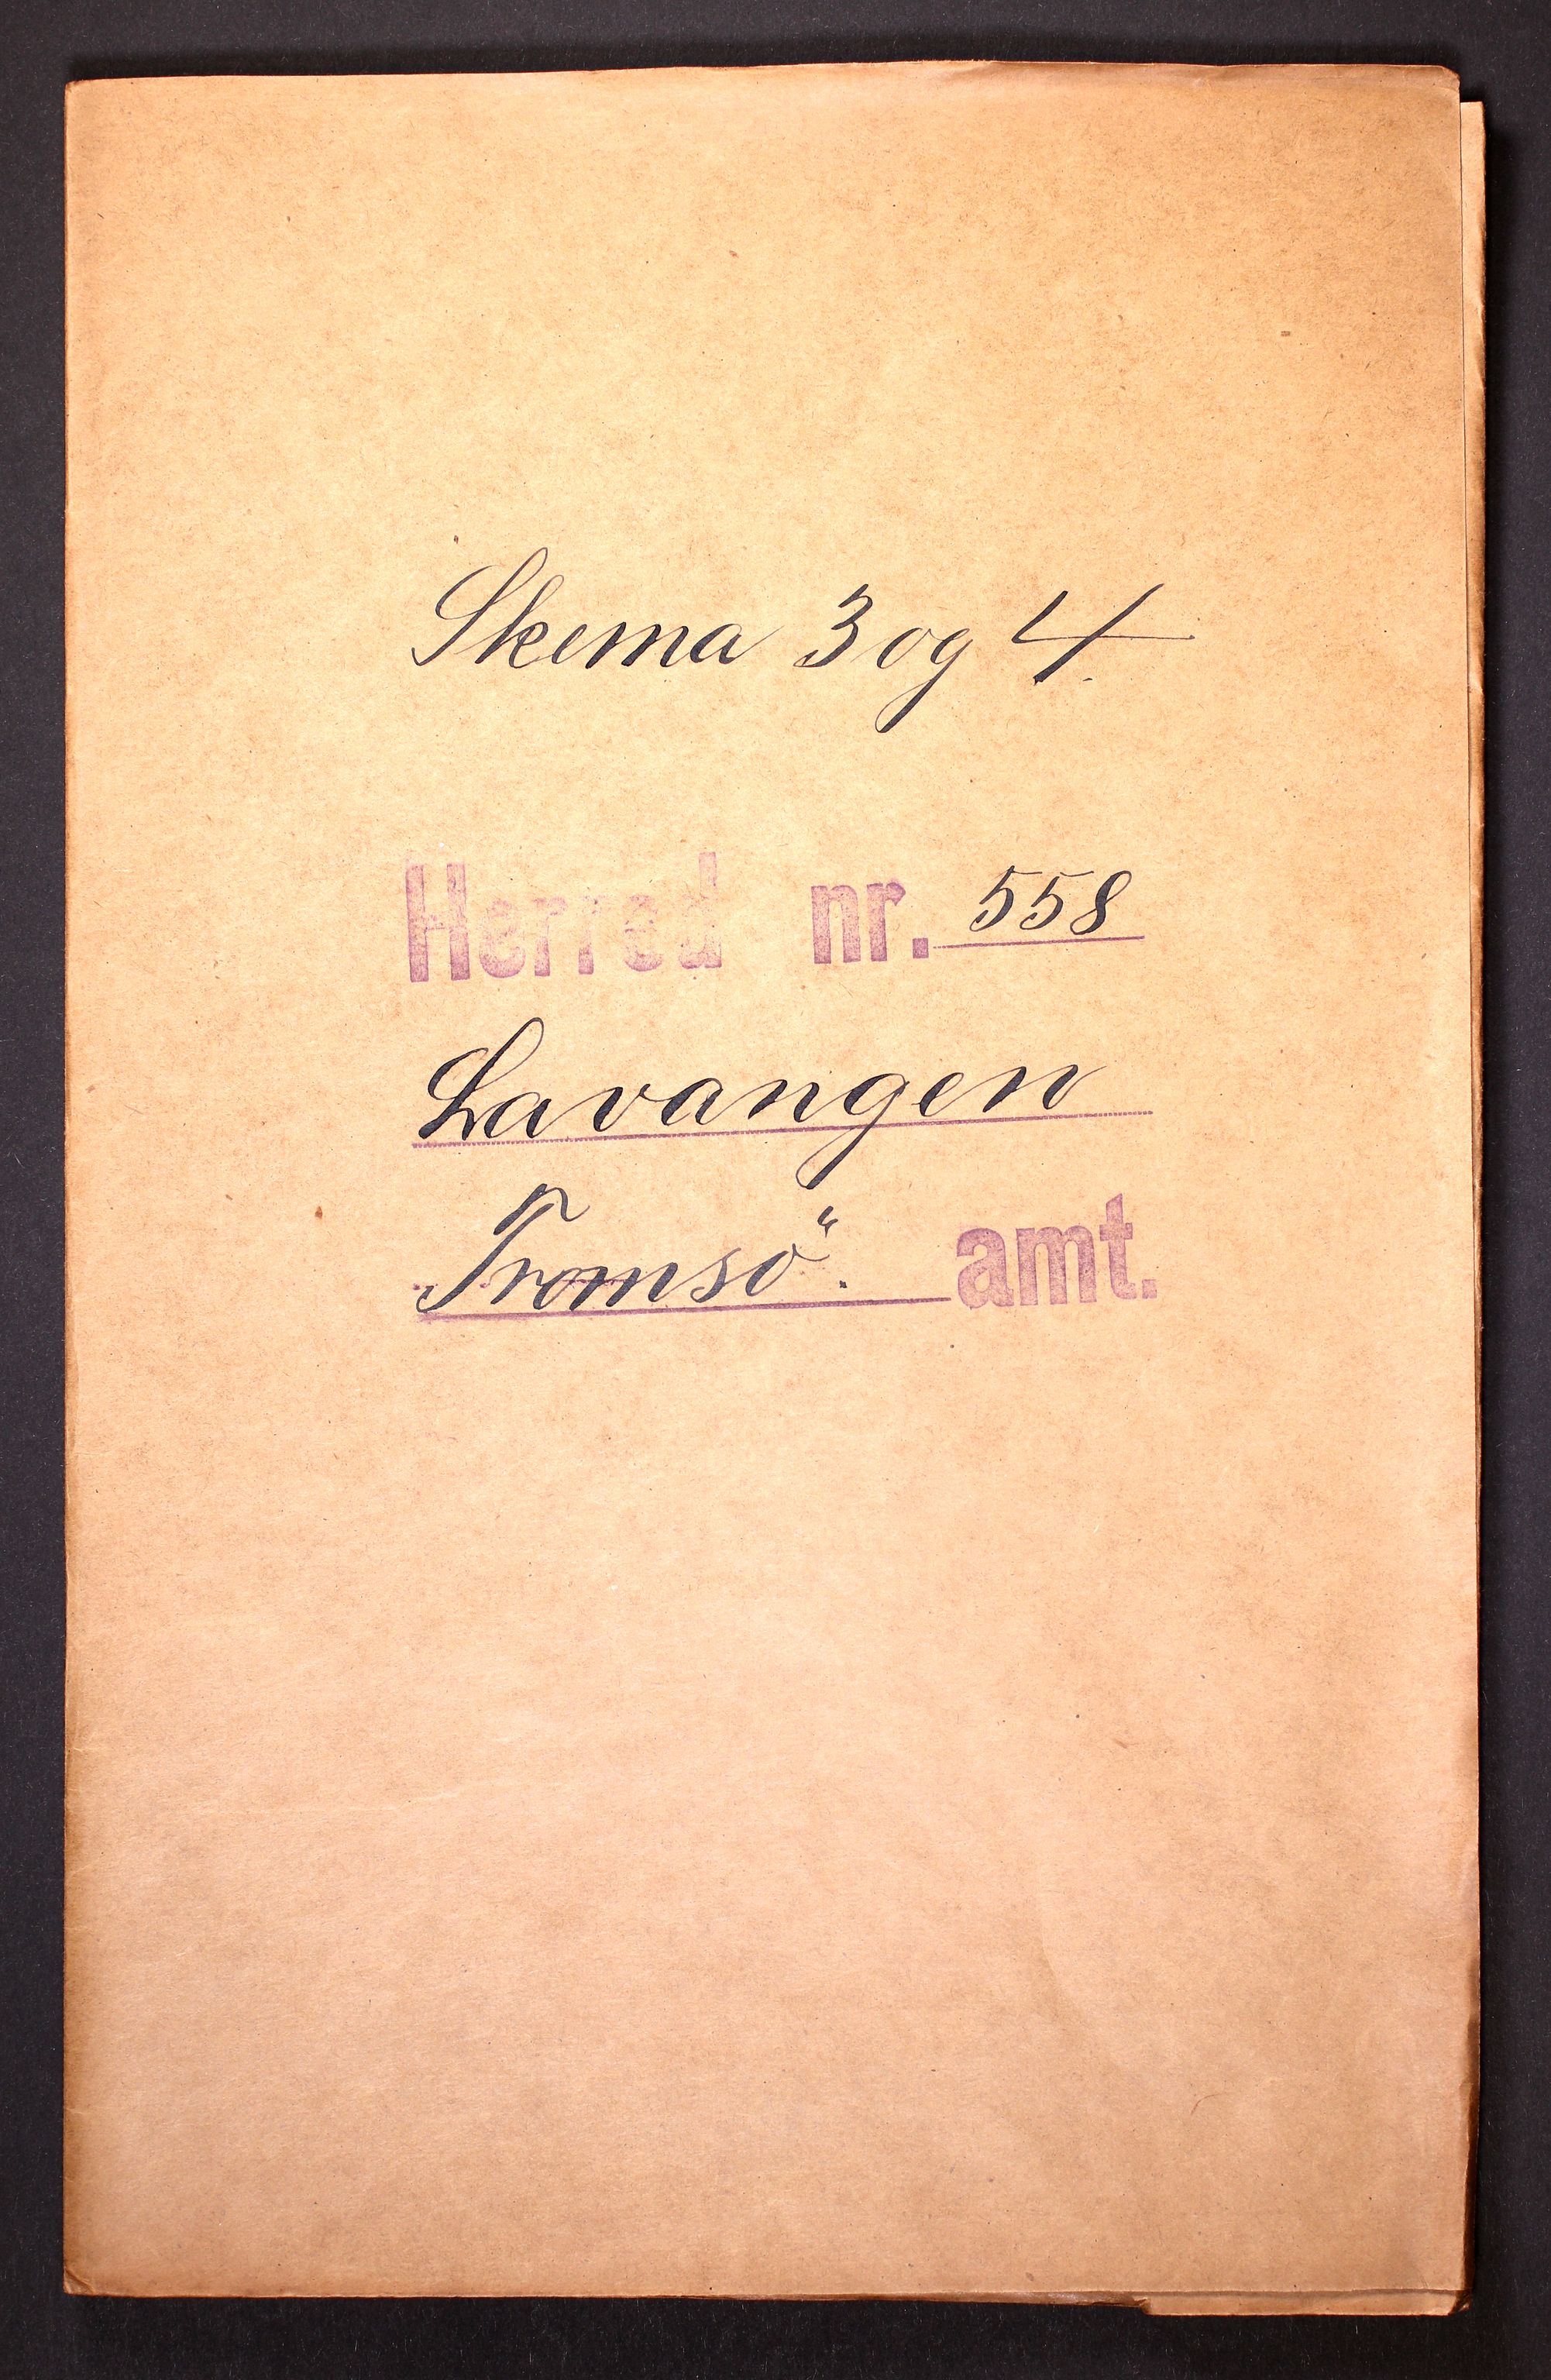 Skema 3 og 4.
Herred nr. 558
Lavangen
Tromsö. amt.